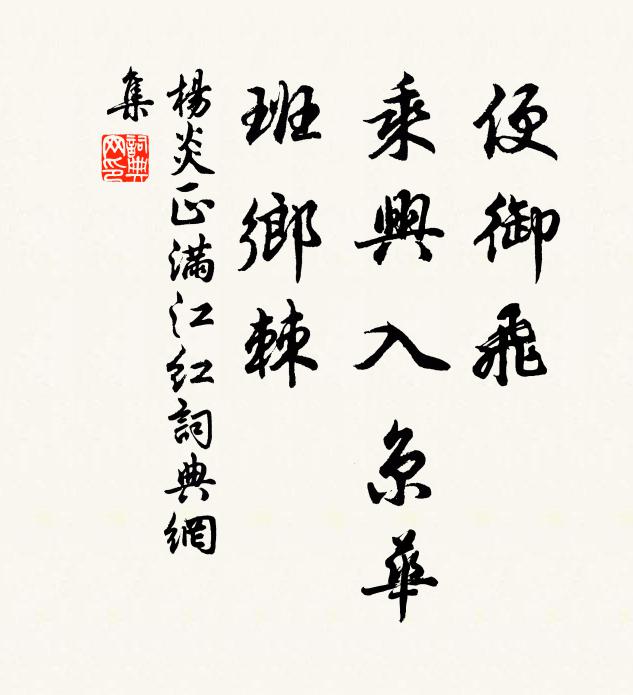 便御飛
乘興入京華
班鄉棘
楊炎正滿江紅詞典網
集
詞典
网印